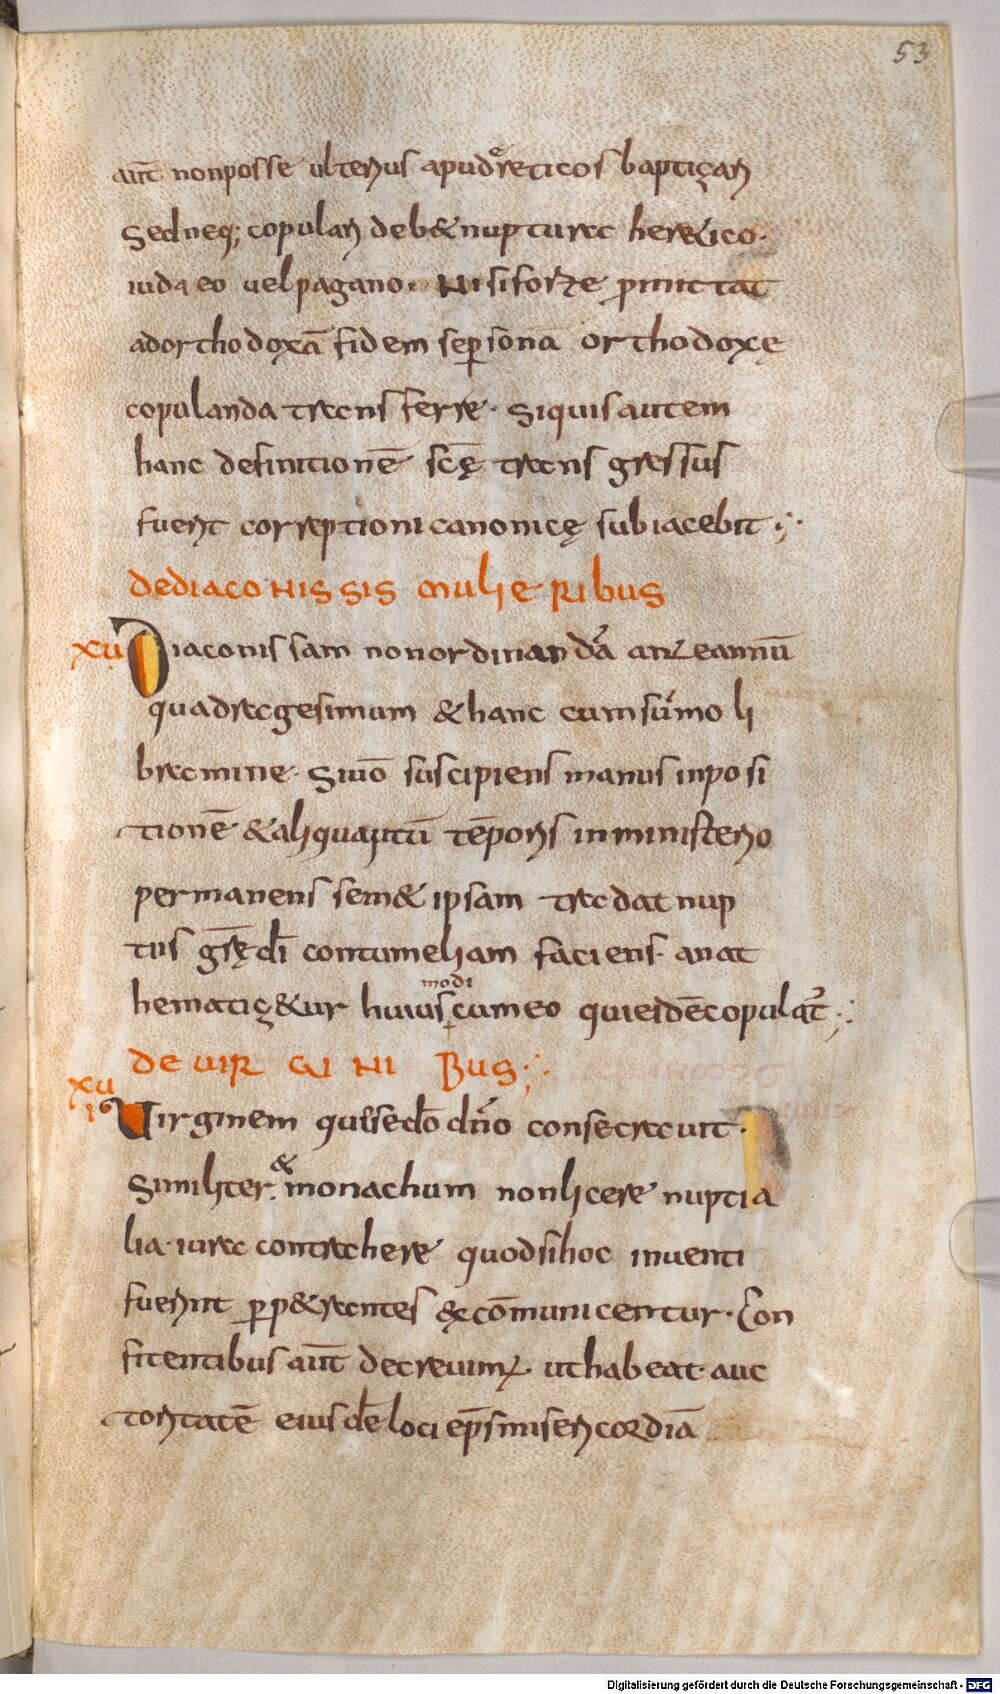 53
aut̄ nonposse ulterius apudereticos baptizari
Sedneq; copulari deb&nupturae her&ico.
iudaeo uelpagano. Nisiforte p̱mittat
adorthodoxā fidem sep̱sonā orthodoxę
copulanda transferre. Siquisautem
hanc definitionē scę̄ transgressus
fuerit correptionicanonicę subiacebit;
dediacoNissis mulieribus
xu Diaconissam nonordinandā anteannū
quadragesimum &hanc cumsūmo li
bramine. Siuō suscipiens manus inposi
tionē &aliquantū tēporis inministerio
permanens sem& ipsam tradat nup
tiis grę̄ dī contumeliam faciens. anat
hematiz&ur huiusmodi cumeo quieidēcopulat̄;
de uirgiNiBus;
xui Uirginem quęsedō dn̄o consecrauit.
Similiter & monachum nonlicere nuptia
lia iura contrahere quodsihoc inuenti
fuerint p̱p&rantes excōmunicentur. Con
fitentibusaut̄ decreuim; uthabeat auc
toritatē eiusdēloci ep̄s misericordiā
Digitalisierung gefördert durch die Deutsche Forschungsgemeinschaft - DFG